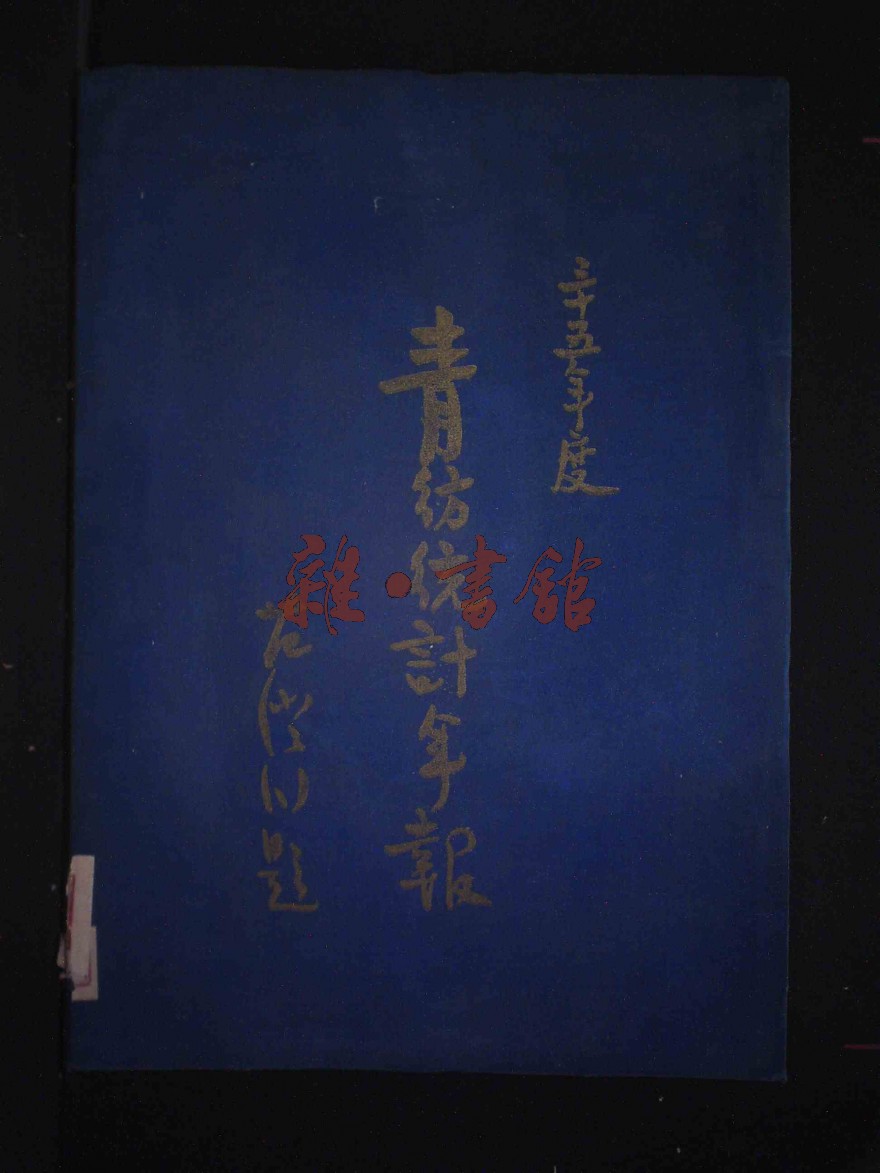 三十五年度
青紡統計年報
題
雜·書館